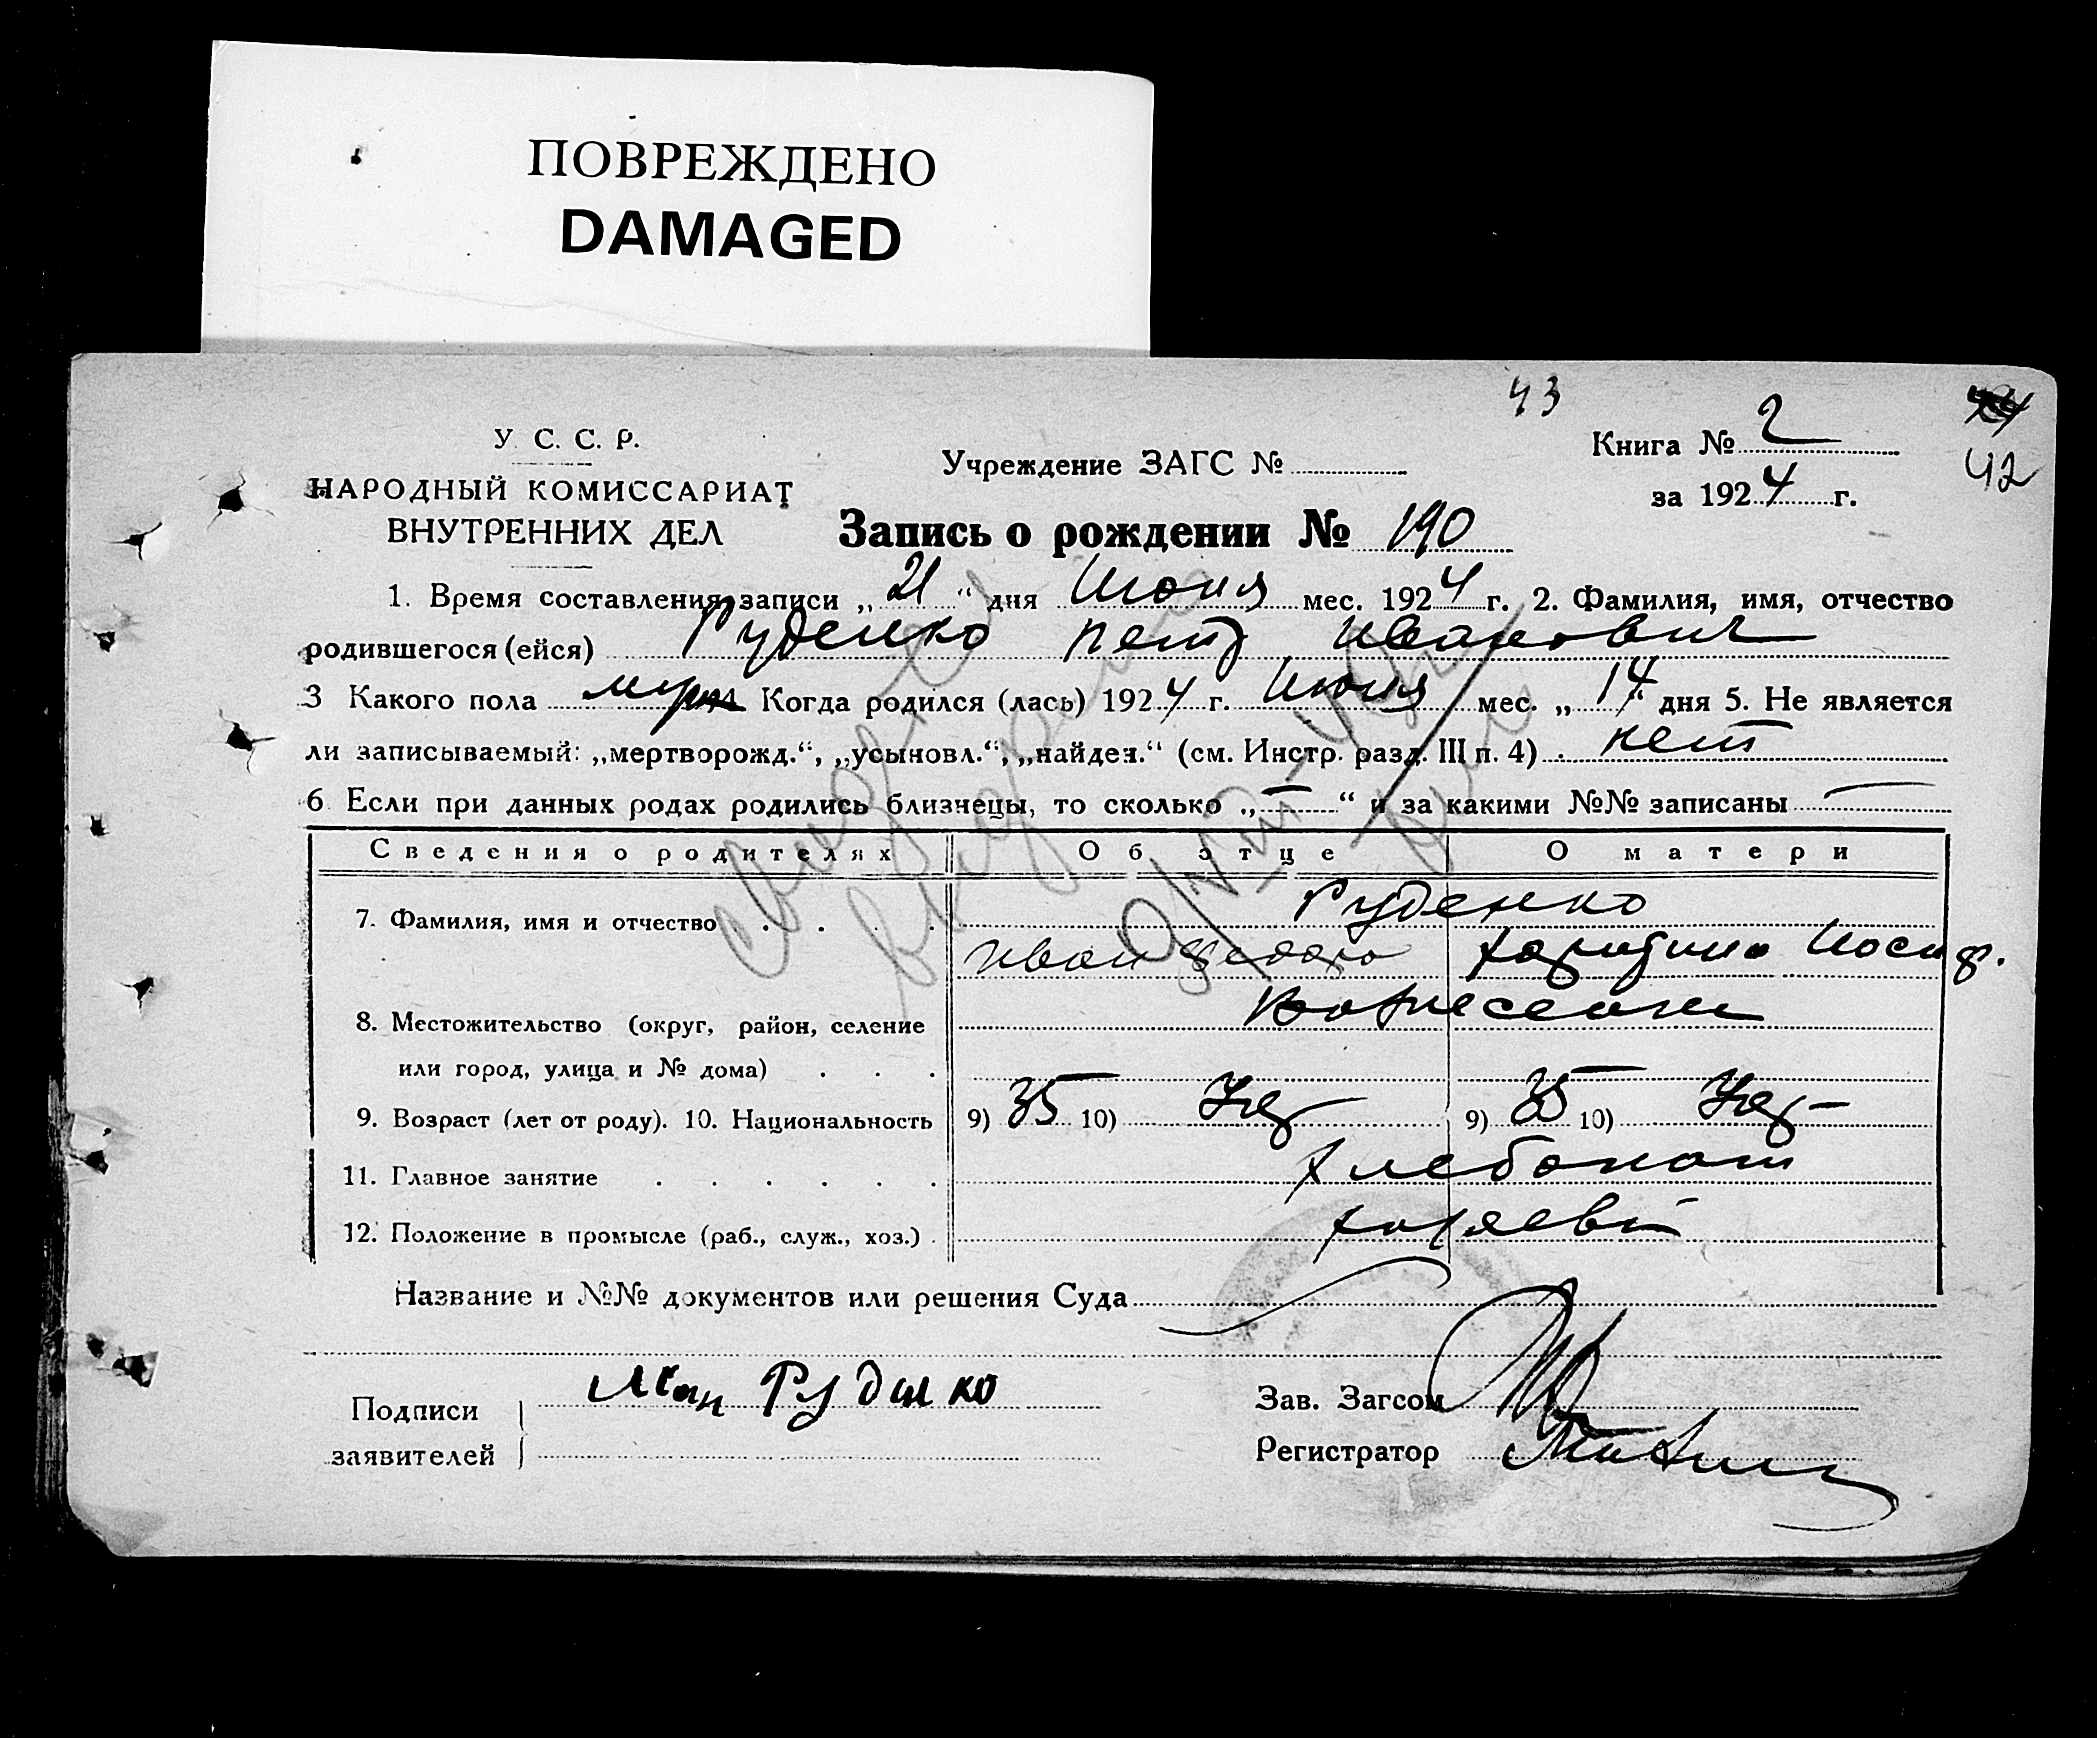 ПОВРЕЖДЕНО
DAMAGED
43
У. С. С. Р.
НАРОДНЫЙ КОМИССАРИАТ
ВНУТРЕННИХ ДЕЛ
Учреждение ЗАГС №
Книга № 2
за 1924 г.
42
Запись о рождении № 190
1. Время составления записи „21“ дня Июня мес. 1924 г. 2. Фамилия, имя, отчество
родившегося (ейся) Руденко Петр Иванович
3 Какого пола муж 4 Когда родился (лась) 1924 г. Июня мес. „14“ дня 5. Не является
ли записываемый: „мертворожд.“, „усыновл.“, „найден.“ (см. Инстр. разд. III п. 4) нет
6 Если при данных родах родились близнецы, то сколько „—“ и за какими №№ записаны —
Сведения о родителях Об отце О матери
7. Фамилия, имя и отчество Руденко
Иван Федоро Иосиф.
8. Местожительство (округ, район, селение
или город, улица и № дома)
9. Возраст (лет от роду). 10. Национальность 9) 35 10) Укр 9) 35 10) Укр
11. Главное занятие хлебопаш
12. Положение в промысле (раб., служ., хоз.) хозяева
Название и №№ документов или решения Суда
Подписи
заявителей
Иван Руденко
Зав. Загсом
Регистратор